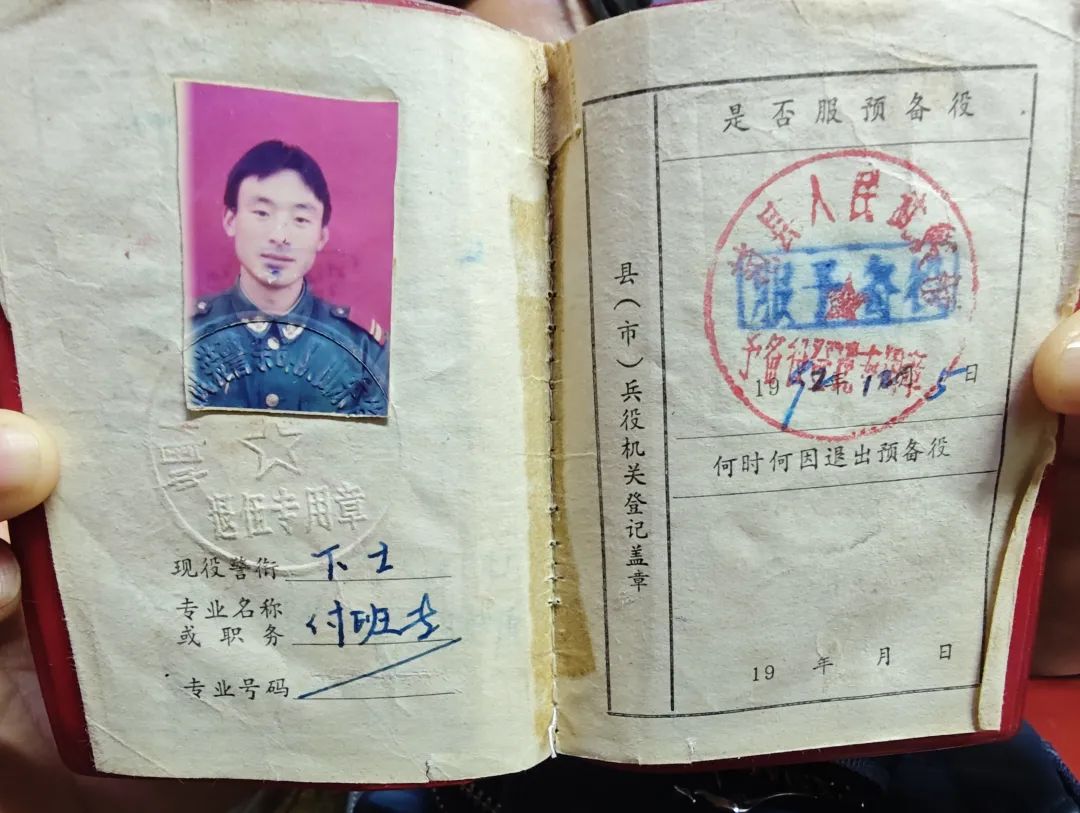 退伍专用章
现役警衔 下士
专业名称
或职务 付班长
专业号码
是否服预备役
县人民政府
服予备役
予备役
1992年12月5日
何时何因退出预备役
19 年 月 日
县(市)兵役机关登记盖章